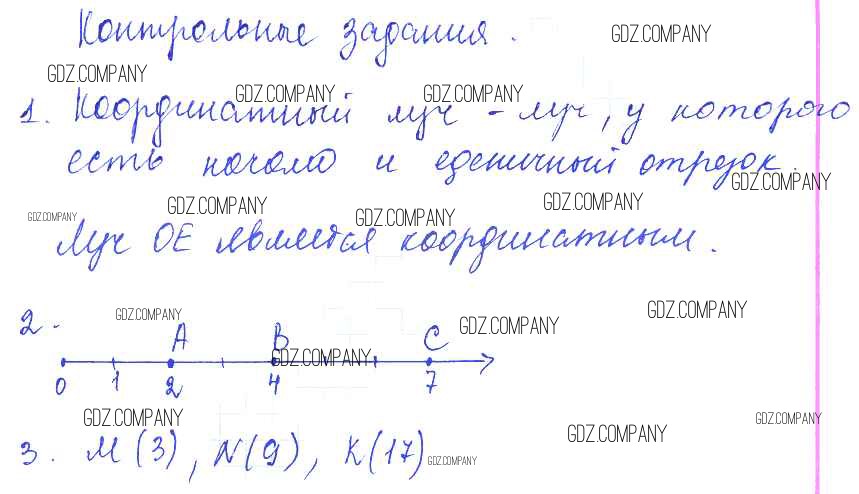 Контрольные задания.
GDZ.COMPANY
GDZ.COMPANY
GDZ.COMPANY
GDZ.COMPANY
1. Координатный луч - луч, у которого
есть начало и еденичный отрезок.
GDZ.COMPANY
GDZ.COMPANY
GDZ.COMPANY
GDZ.COMPANY
GDZ.COMPANY
Луч OE является координатным.
2.
GDZ.COMPANY
GDZ.COMPANY
GDZ.COMPANY
A B C
GDZ.COMPANY
0 1 2 4 7
GDZ.COMPANY
GDZ.COMPANY
GDZ.COMPANY
3. M(3), N(9), K(17)
GDZ.COMPANY